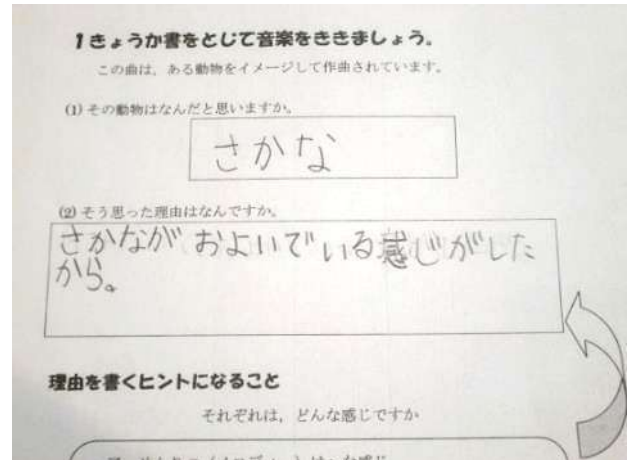 1 きょうか書をとじて音楽をききましょう。
この曲は、ある動物をイメージして作曲されています。
(1) その動物はなんだと思いますか。
さかな
(2) そう思った理由はなんですか。
さかなが およいでいる感じがした
から。
理由を書くヒントになること
それぞれは、どんな感じですか